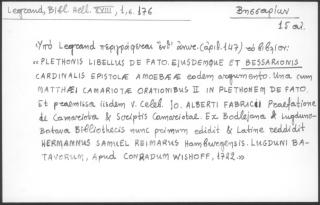 Legrand, Bibl. Hell. XVIII, 1, σ. 176
Βησσαρίων
15 αἰ.
Ὑπὸ Legrand περιγράφεται ἐνθ' ἀνωτ. (ἀριθ. 147) τὸ βιβλίον:
«PLETHONIS LIBELLUS DE FATO. EJUSDEMQUE ET BESSARIONIS
CARDINALIS EPISTOLÆ AMOEBÆÆ eodem argumento. Una cum
MATTHÆI CAMARIOTÆ ORATIONIBUS II IN PLETHONEM DE FATO.
Et praemissa iisdem V. Celeb. Jo. ALBERTI FABRICII Praefatione
de Camariota & Scriptis Camariotae. Ex Bodlejana & Lugduno-
Batava Bibliothecis nunc primum edidit & Latine reddidit
HERMANNUS SAMUEL REIMARUS Hamburgensis. LUGDUNI BA-
TAVORUM, Apud CONRADUM WISHOFF, 1722.»